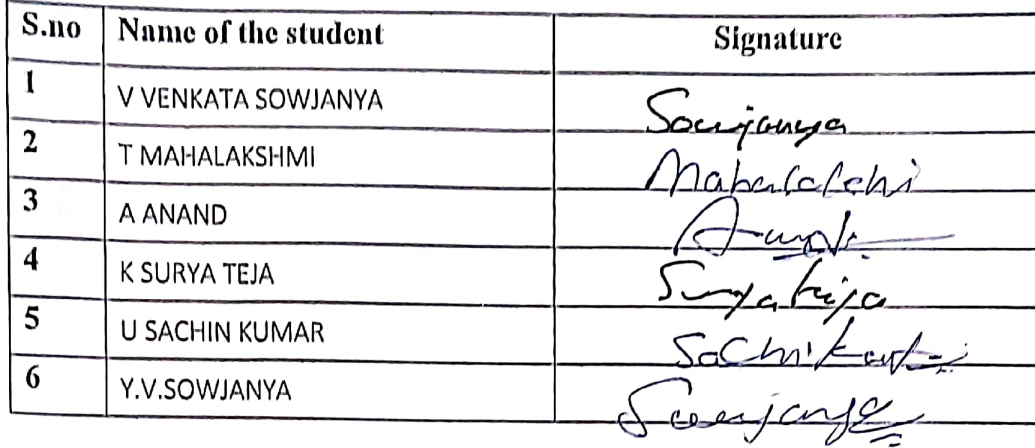 S.no Name of the student Signature
1 V VENKATA SOWJANYA Sowjanya
2 T MAHALAKSHMI
3 A ANAND
4 K SURYA TEJA Suryateja
5 U SACHIN KUMAR
6 Y.V.SOWJANYA Sowjanya